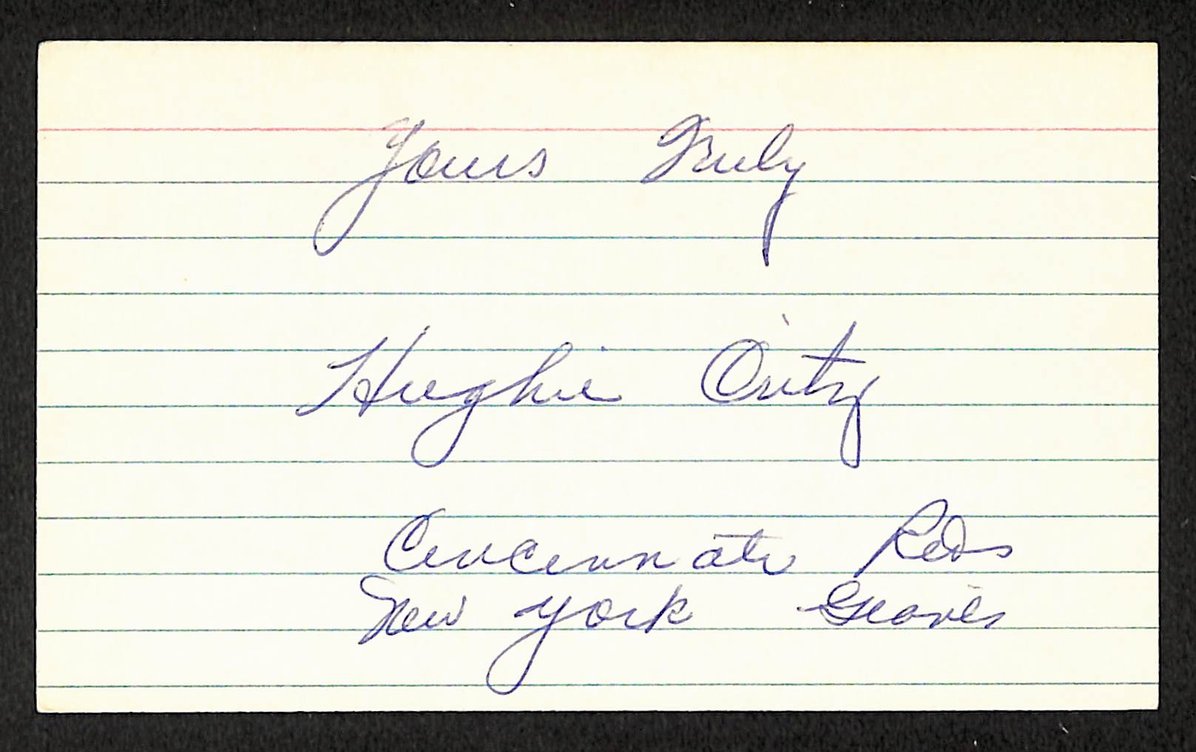 Yours Truly
Hughie Critz
Cincinnati Reds
New York Giants